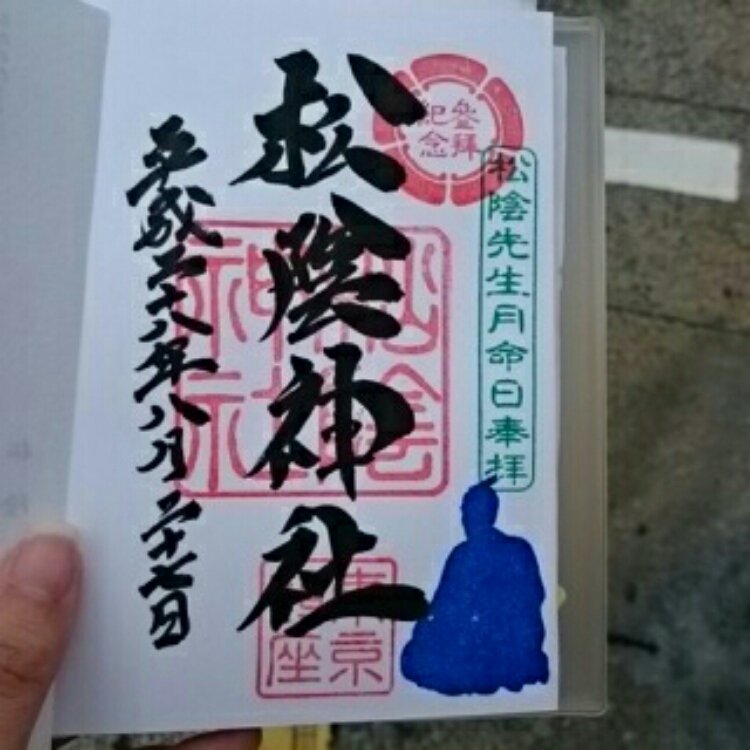 松陰先生月命日奉拝
參拜
紀念
松陰神社
松陰
神社
東京
座
平成二十八年八月二十七日